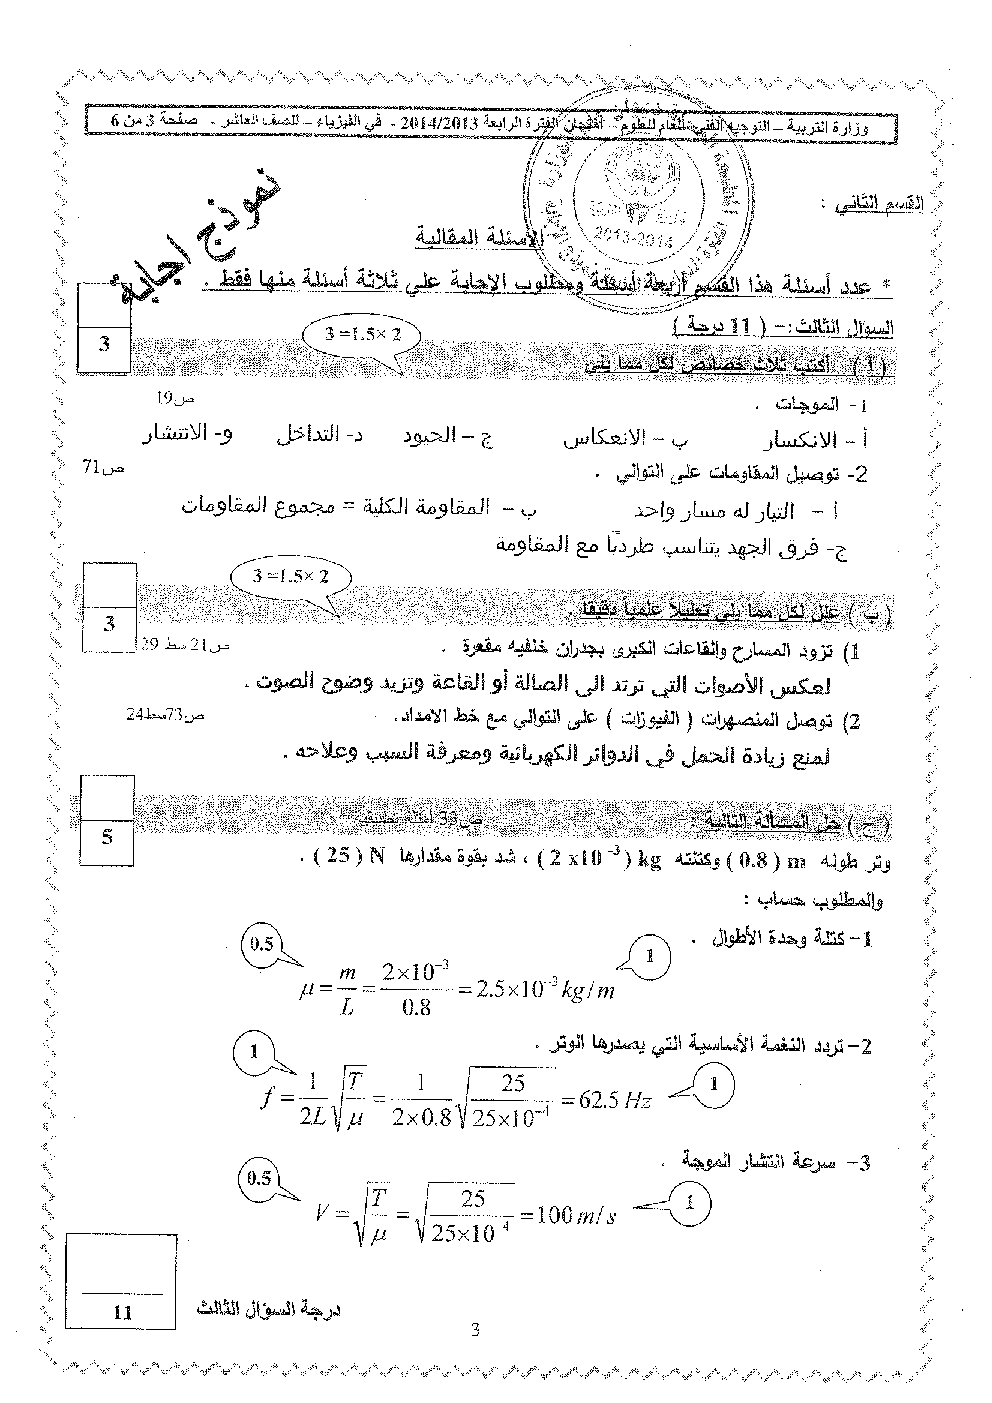 وزارة التربية – التوجيه الفني العام للعلوم – امتحان الفترة الرابعة 2014/2013 - في الفيزياء – للصف العاشر - صفحة 3 من 6
نموذج اجابة
القسم الثاني :
2013-2014
الأسئلة المقالية
* عدد أسئلة هذا القسم أربعة أسئلة ومطلوب الإجابة على ثلاثة أسئلة منها فقط .
السؤال الثالث:– ( 11 درجة )
3 =1.5× 2
3
( أ ) أكتب ثلاث خصائص لكل مما يلي
1- الموجات . ص19
أ – الانكسار ب – الانعكاس ج – الحيود د- التداخل و- الانتشار
2- توصيل المقاومات على التوالي . ص71
أ – التيار له مسار واحد ب – المقاومة الكلية = مجموع المقاومات
ج- فرق الجهد يتناسب طرديًا مع المقاومة
3 =1.5× 2
3
( ب ) علل لكل مما يلي تعليلا علميا دقيقا .
1) تزود المسارح والقاعات الكبرى بجدران خلفيه مقعرة . ص21 سط 29
لعكس الأصوات التي ترتد الى الصالة أو القاعة وتزيد وضوح الصوت .
2) توصل المنصهرات ( الفيوزات ) على التوالي مع خط الامداد. ص73سط24
لمنع زيادة الحمل في الدوائر الكهربائية ومعرفة السبب وعلاجه .
5
( ج ) حل المسألة التالية
وتر طوله m ( 0.8 ) وكتلته kg ( 2 x10 ⁻³ ) ، شد بقوة مقدارها N ( 25 ) .
والمطلوب حساب :
1– كتلة وحدة الأطوال .
0.5
1
μ = m/L = 2×10⁻³/0.8 = 2.5×10⁻³ kg/m
2– تردد النغمة الأساسية التي يصدرها الوتر .
1
1
f = 1/2L √(T/μ) = 1/(2×0.8) √(25/(25×10⁻⁴)) = 62.5 Hz
3– سرعة انتشار الموجة .
0.5
1
V = √(T/μ) = √(25/(25×10⁻⁴)) = 100 m/s
11
درجة السؤال الثالث
3